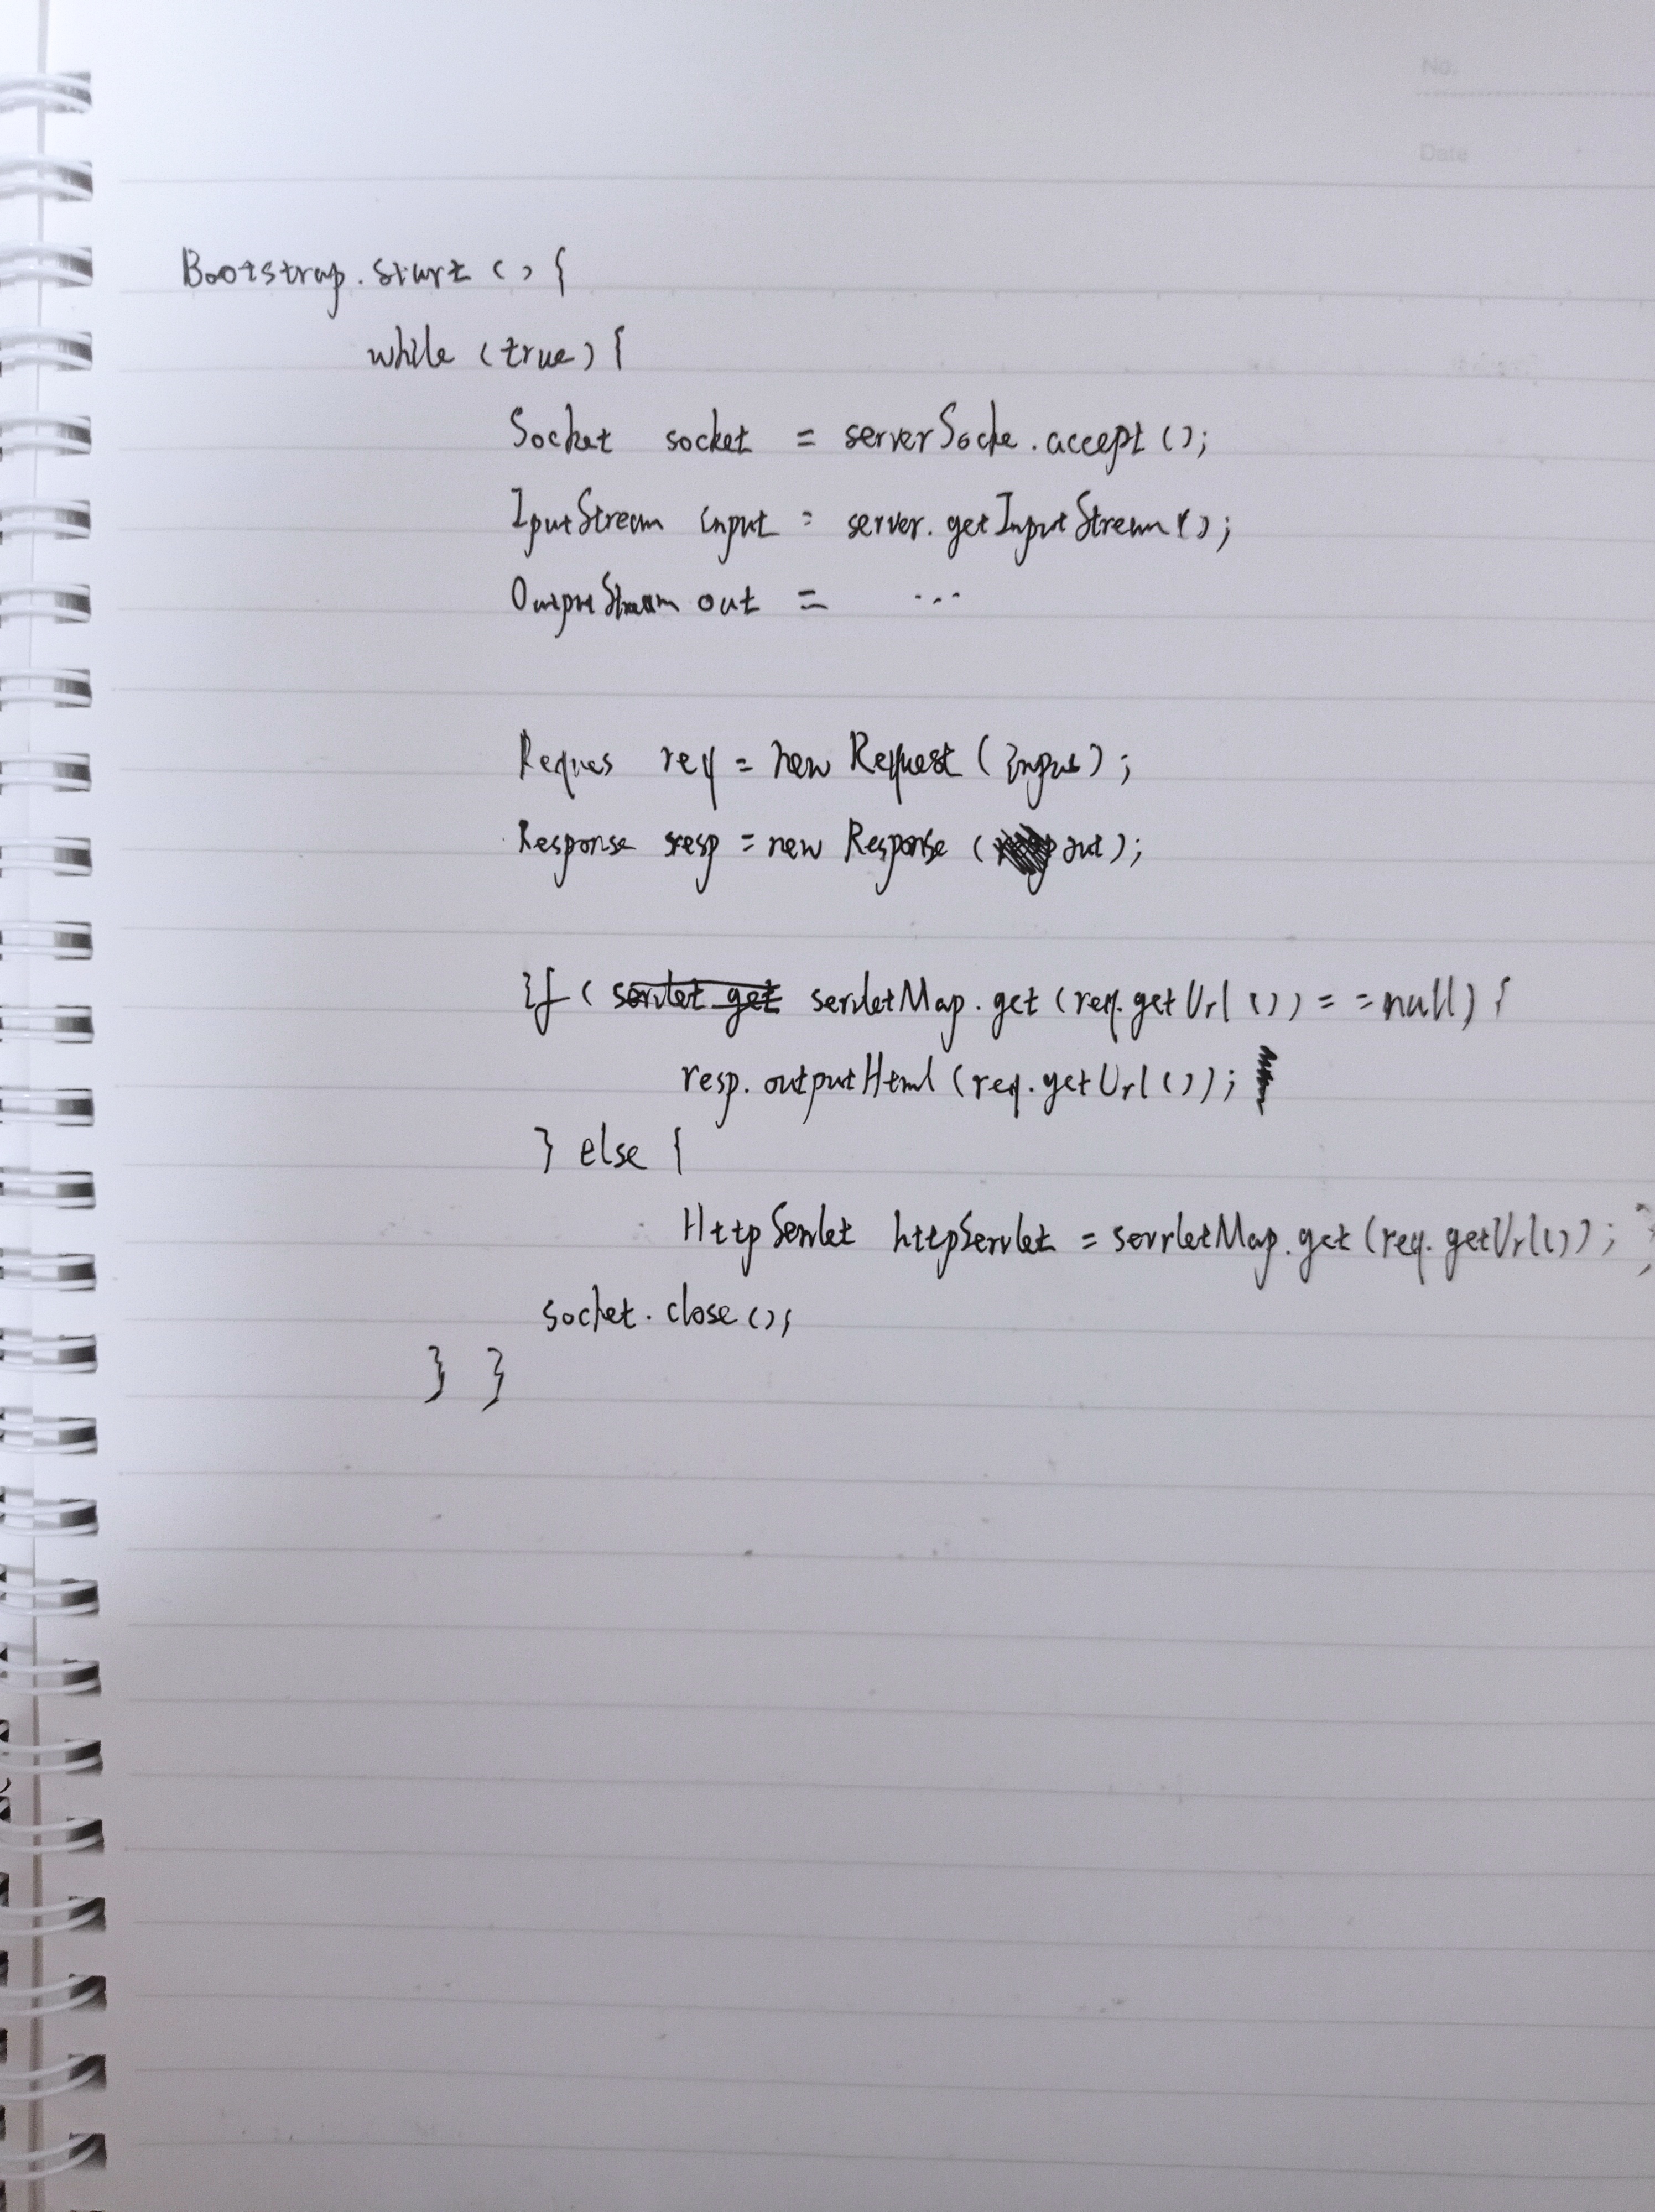 No.
Date
Bootstrap.start () {
while (true) {
Socket socket = serverSocke.accept ();
IputStream input = server.getInputStream ();
OutputStream out = ...
Reques req = new Request (input);
Response resp = new Response (out);
if ( servletMap.get (req.getUrl ()) == null) {
resp.outputHtml (req.getUrl ());
} else {
HttpServlet httpServlet = servletMap.get (req.getUrl()); }
socket.close ();
} }